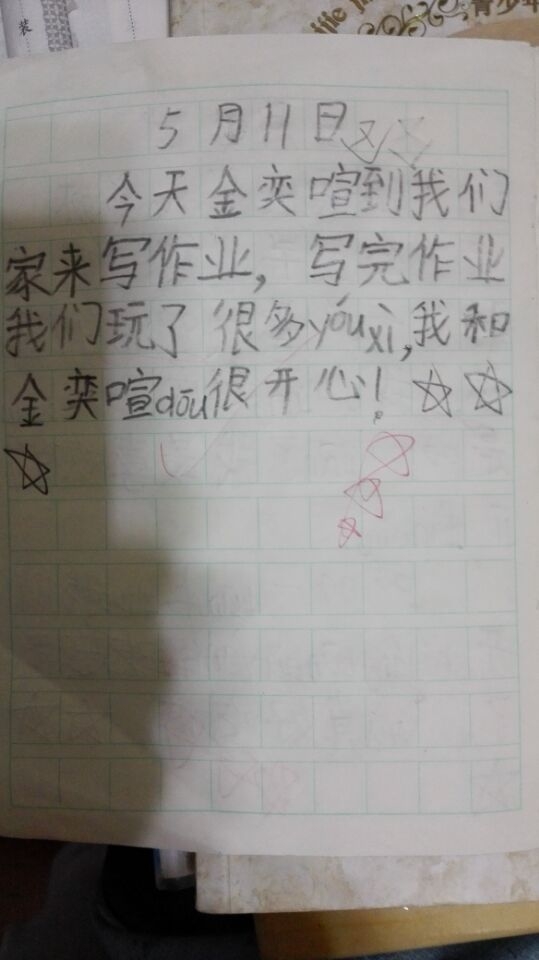 装
青少年
5月11日
今天金奕喧到我们
家来写作业，写完作业
我们玩了很多yóuxì,我和
金奕喧dōu很开心！☆☆
☆